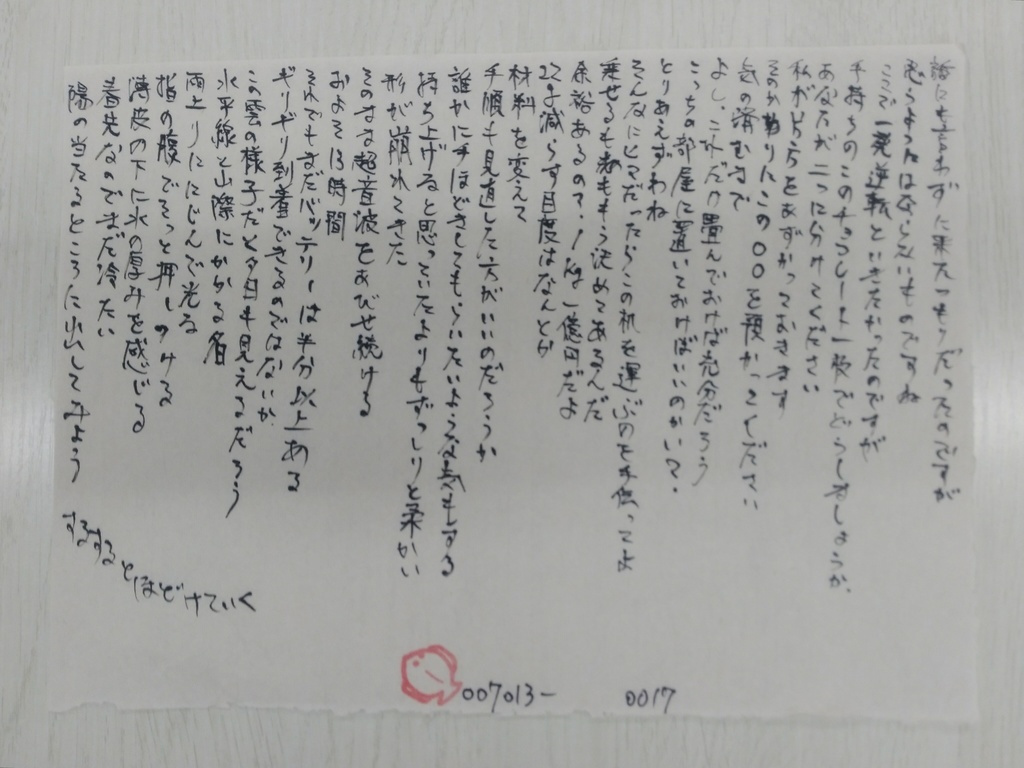 誰にも言わずに来たつもりだったのですが
思うようにはならないものですね
ここで一発逆転といきたかったのですが
手持ちのこのチョコレート一枚でどうしましょうか
あなたが二つに分けてください
私が片方をあずかっておきます
そのかわりにこの〇〇を預かってください
気の済むまで
よし、これだけ畳んでおけば充分だろう
こっちの部屋に置いておけばいいのかいて・
とりあえずわね
そんなにヒマだったらこの机を運ぶのを手伝ってよ
乗せるも もう決めてあるんだ
余裕あるので、1kg 一億円だよ
22g減らす目度はなんとか
材料を変えて
手順も見直した方がいいのだろうか
誰かに手ほどきしてもらいたいような気もする
持ち上げると思っていたよりもずっしりと柔かい
形が崩れてきた
そのまま超音波をあびせ続ける
およそ13時間
それでもまだバッテリーは半分以上ある
ギリギリ到着できるのではないか
この雲の様子だと夕日も見えるだろう
水平線と山際にかかる名
雨上りににじんで光る
指の腹でそっと押しつける
薄皮の下に氷の厚みを感じる
春先なのでまだ冷たい
陽の当たるところに出してみよう
するするとほどけていく
007013-
0017